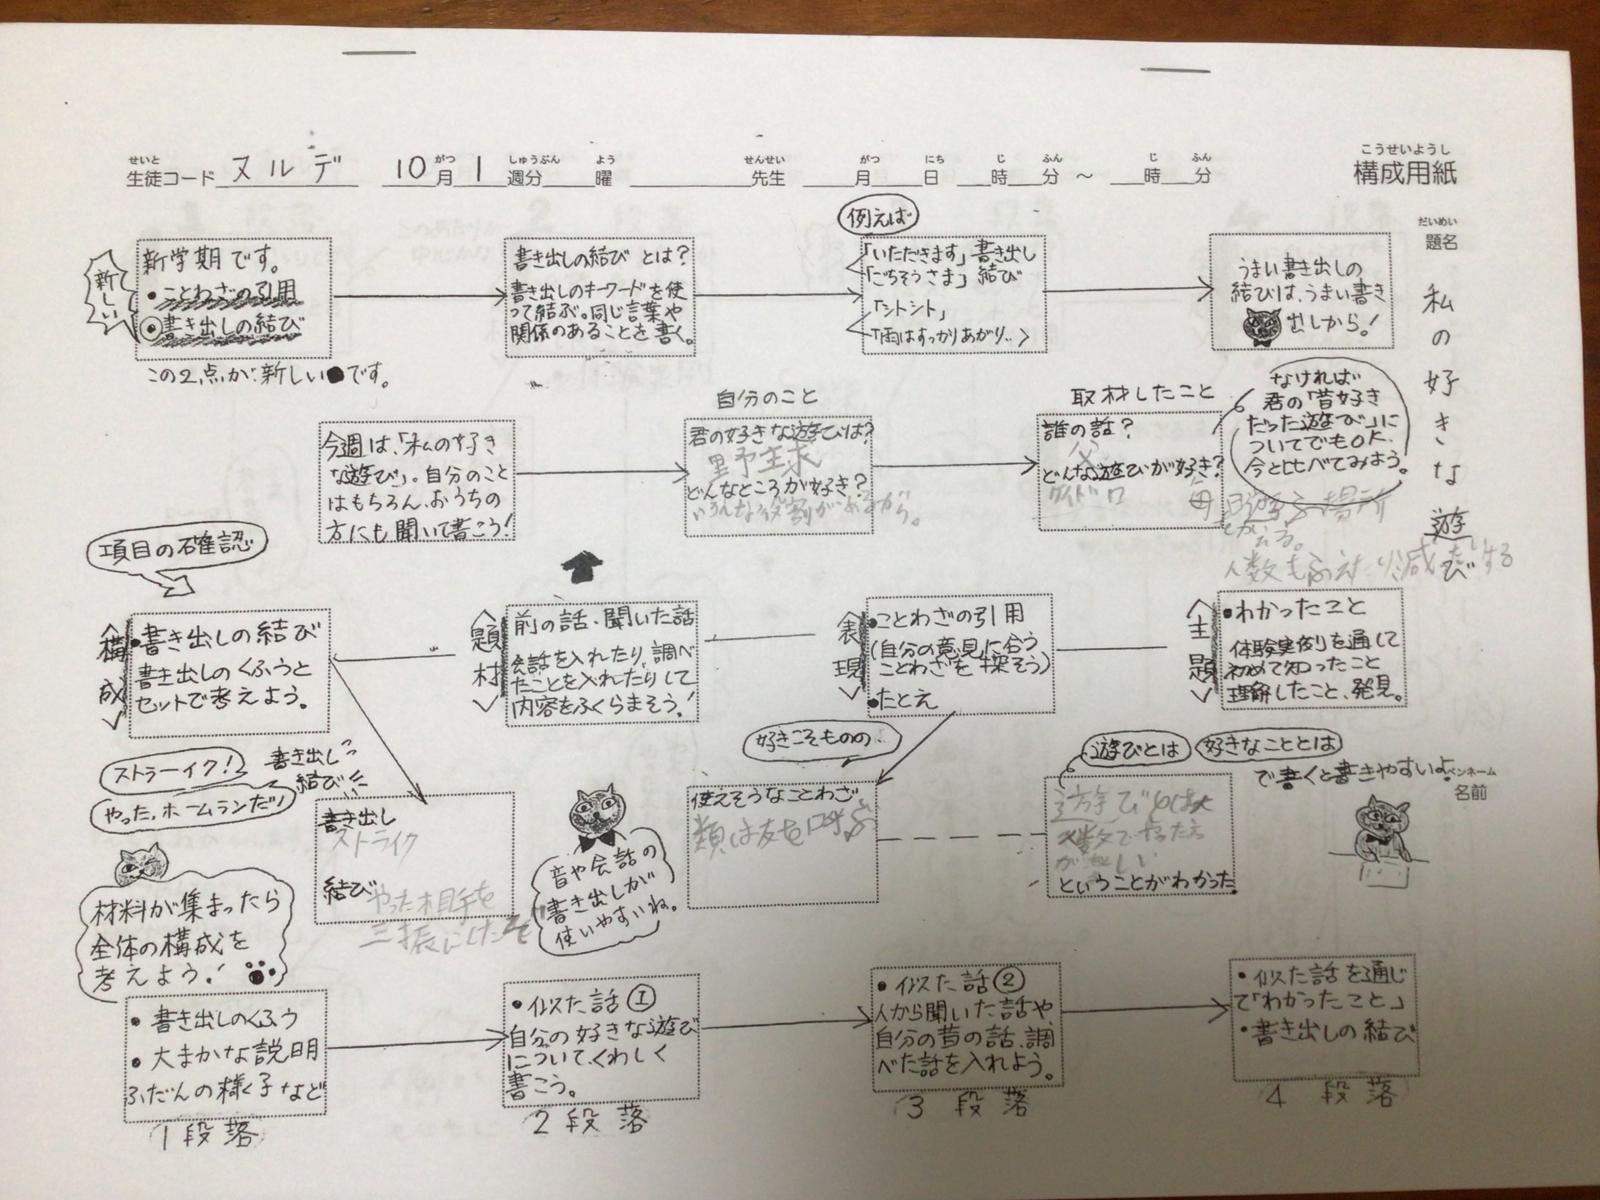 せいと がつ しゅうぶん よう せんせい がつ にち じ ふん じ ふん
生徒コード ヌルデ 10月 1週分 曜 先生 月 日 時 分 ～ 時 分
こうせいようし
構成用紙
だいめい
題名
私の好きな遊び
新しい
新学期です。
・ことわざの引用
◎書き出しの結び
この2点が新しい●です。
書き出しの結びとは?
書き出しのキーワードを使
って結ぶ。同じ言葉や
関係のあることを書く。
例えば
「いただきます」書き出し
「ごちそうさま」結び
「シトシト」
「雨はすっかりあがり‥」
うまい書き出しの
結びは、うまい書き
出しから!
今週は、「私の好き
な遊び」。自分のこと
はもちろん、おうちの
方にも聞いて書こう!
自分のこと
君の好きな遊びは?
野球
どんなところが好き?
いろんな役割があるから。
取材したこと
誰の話?
父
どんな遊びが好き?
ケイドロ
母
なければ
君の「昔好き
だった遊び」に
ついてでもOK、
今と比べてみよう。
遊ぶ場所
人数もふえたり減
項目の確認
〈構成〉
・書き出しの結び
書き出しのくふうと
セットで考えよう。
〈題材〉
前の話・聞いた話
会話を入れたり、調べ
たことを入れたりして
内容をふくらまそう!
〈表現〉
・ことわざの引用
(自分の意見に合う
ことわざを探そう)
・たとえ
〈主題〉
・わかったこと
体験実例を通して
初めて知ったこと
理解したこと、発見。
ストラーイク!
やった、ホームランだ!
書き出し
結び
書き出し
ストライク
結び
やった相手を
三振にしたぞ
音や会話の
書き出しが
使いやすいね。
好きこそものの‥
使えそうなことわざ
類は友を呼ぶ
遊びとは
好きなこととは
で書くと書きやすいよ
遊びは
人数でやった方
が楽しい
ということがわかった。
ペンネーム
名前
材料が集まったら
全体の構成を
考えよう!
・書き出しのくふう
・大まかな説明
ふだんの様子など
1段落
・似た話①
自分の好きな遊び
について、くわしく
書こう。
2段落
・似た話②
人から聞いた話や、
自分の昔の話、調
べた話を入れよう。
3段落
・似た話を通じ
て「わかったこと」
・書き出しの結び
4段落